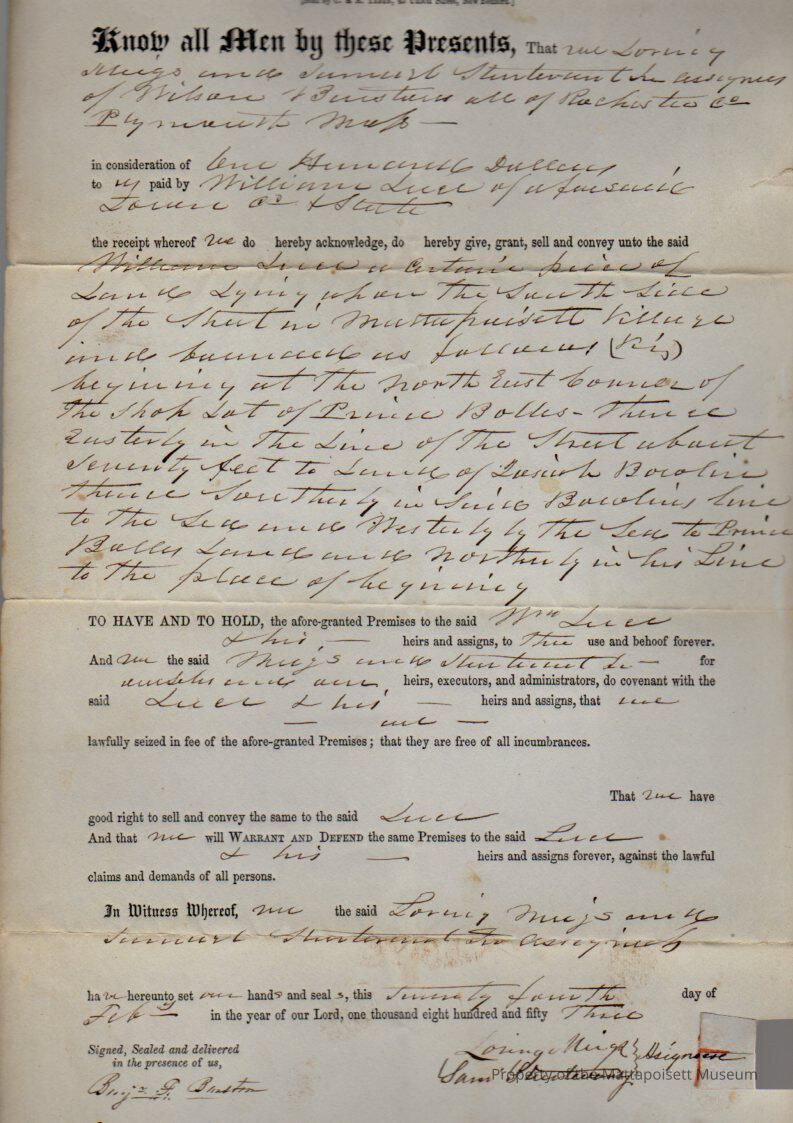 Know all Men by these Presents, That we Loring
Meigs and Samuel Sturtevant Jr assignees
of Wilson Barstow all of Rochester Co
Plymouth Mass —
in consideration of One Hundred Dollars
to us paid by William Luce of aforesaid
Town Co & State
the receipt whereof we do hereby acknowledge, do hereby give, grant, sell and convey unto the said
William Luce a certain piece of
Land Lying upon the South side
of the Street in Mattapoisett Village
and bounded as follows (Viz)
beginning at the North East Corner of
the Shop Lot of Prince Bolles - thence
Easterly in the Line of the Street about
seventy feet to Land of Josiah Bowlin
thence Southerly in said Bowlins line
to the Sea and Westerly by the Sea to Prince
Bolles Land and Northerly in his Line
to the place of beginning
TO HAVE AND TO HOLD, the afore-granted Premises to the said Wm Luce
& his — heirs and assigns, to their use and behoof forever.
And we the said Meigs and Sturtevant Jr — for
ourselves and our heirs, executors, and administrators, do covenant with the
said Luce & his — heirs and assigns, that we
— are —
lawfully seized in fee of the afore-granted Premises; that they are free of all incumbrances.
That we have
good right to sell and convey the same to the said Luce
And that we will WARRANT AND DEFEND the same Premises to the said Luce
& his — heirs and assigns forever, against the lawful
claims and demands of all persons.
In Witness Whereof, we the said Loring Meigs and
Samuel Sturtevant Jr assignees
have hereunto set our hands and seals, this twenty fourth day of
Feby in the year of our Lord, one thousand eight hundred and fifty Three
Signed, Sealed and delivered
in the presence of us,
Loring Meigs } Assignees
Sam Sturtevant Jr
Benj. F. Barstow
Property of the Mattapoisett Museum